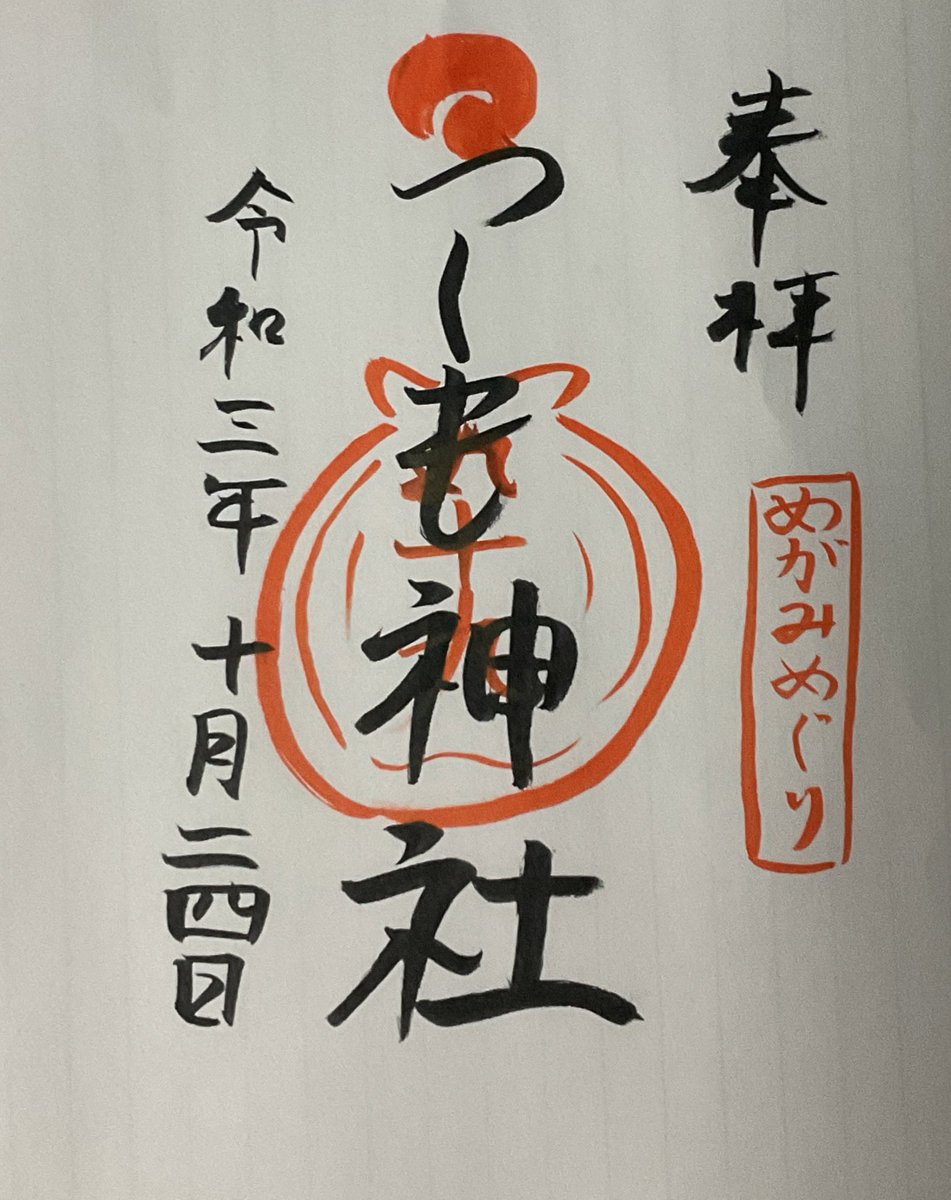 奉拝
めがみめぐり
つくも神社
九十九
令和三年十月二四日